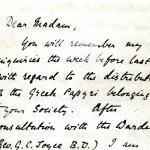 Dear Madam,
You will remember my
inquiries the week before last
with regard to the distribut
the Greek Papyri belonging
your Society. After
onsultation with the Warde
Rev. G. C. Joyce B.D.) I am